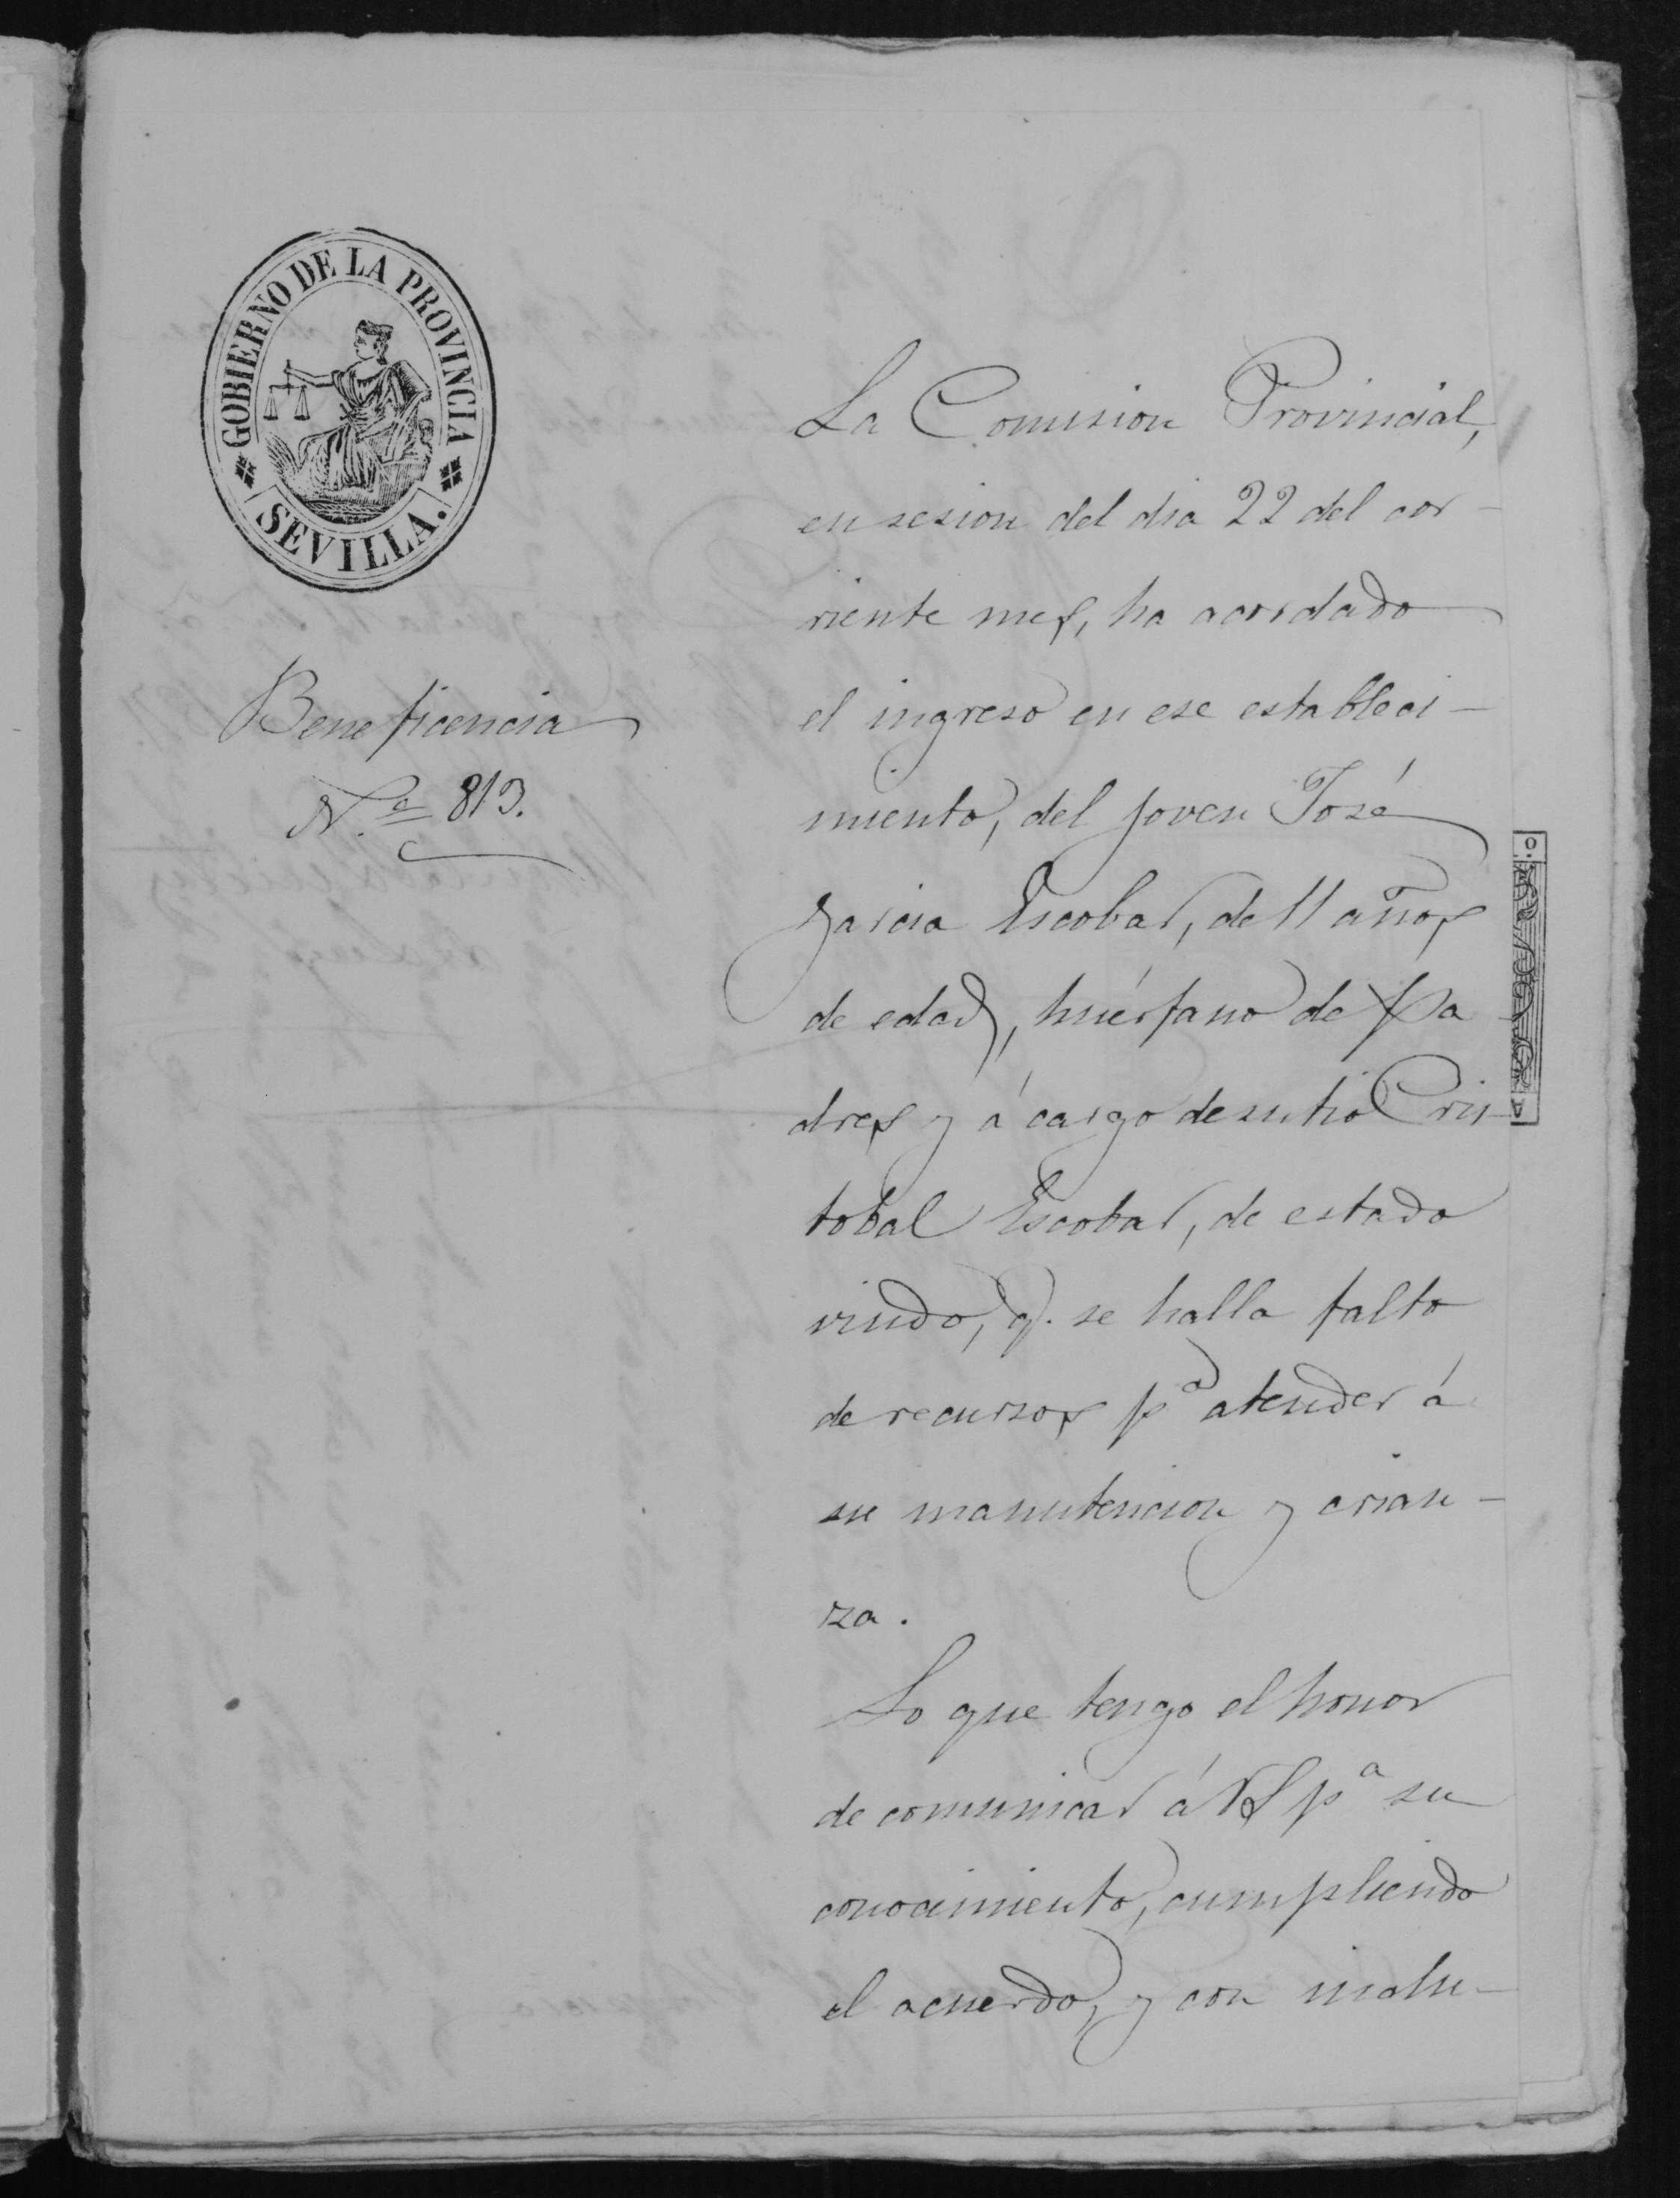 GOBIERNO DE LA PROVINCIA
SEVILLA.
Beneficencia
N.º 813.
La Comision Provincial,
en sesion del dia 22 del cor-
riente mes, ha acordado
el ingreso en ese estableci-
miento, del joven José
Garcia Escobar, de 11 años
de edad, huérfano de pa
dres y á cargo de su tio Cris-
tobal Escobar, de estado
viudo, q. se halla falto
de recursos pª atender á
su manutencion y crian-
za.
Lo que tengo el honor
de comunicar á VS pª su
conocimiento, cumpliendo
el acuerdo, y con inclu-